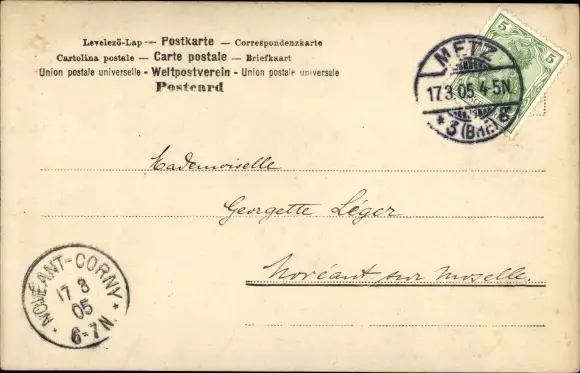 Levelező-Lap — Postkarte — Correspondenzkarte
Cartolina postale — Carte postale — Briefkaart
Union postale universelle - Weltpostverein - Union postale universale
Postcard
5 5
METZ
17.3.05. 4-5N
* 3 (BHF) B
Mademoiselle
Georgette Léger
Novéant sur Moselle
NOVÉANT-CORNY
17 3
05
* 6-7N. *